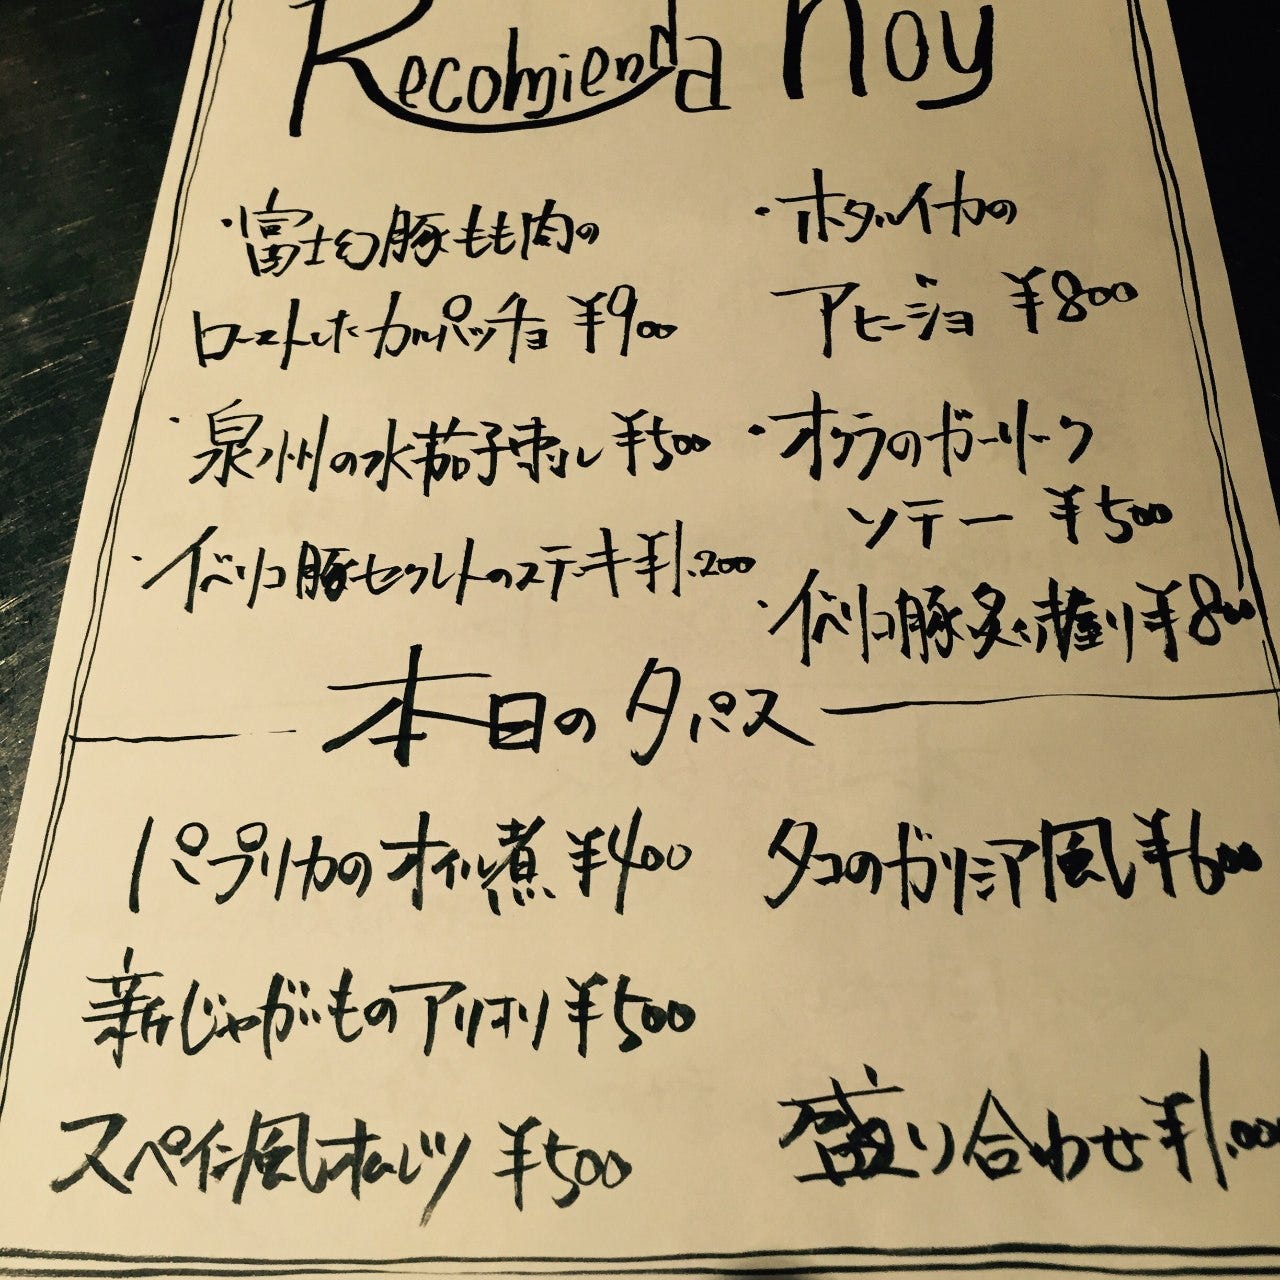 Recomienda hoy
・富士幻豚もも肉の
ローストしたカルパッチョ ¥900
・泉州の水茄子刺し ¥500
・イベリコ豚セクレトのステーキ ¥1.200
・ホタルイカの
アヒージョ ¥800
・オクラのガーリック
ソテー ¥500
・イベリコ豚炙り握り ¥800
本日のタパス
パプリカのオイル煮 ¥400
新じゃがいものアリオリ ¥500
スペイン風オムレツ ¥500
タコのガリシア風 ¥600
盛り合わせ ¥1.000